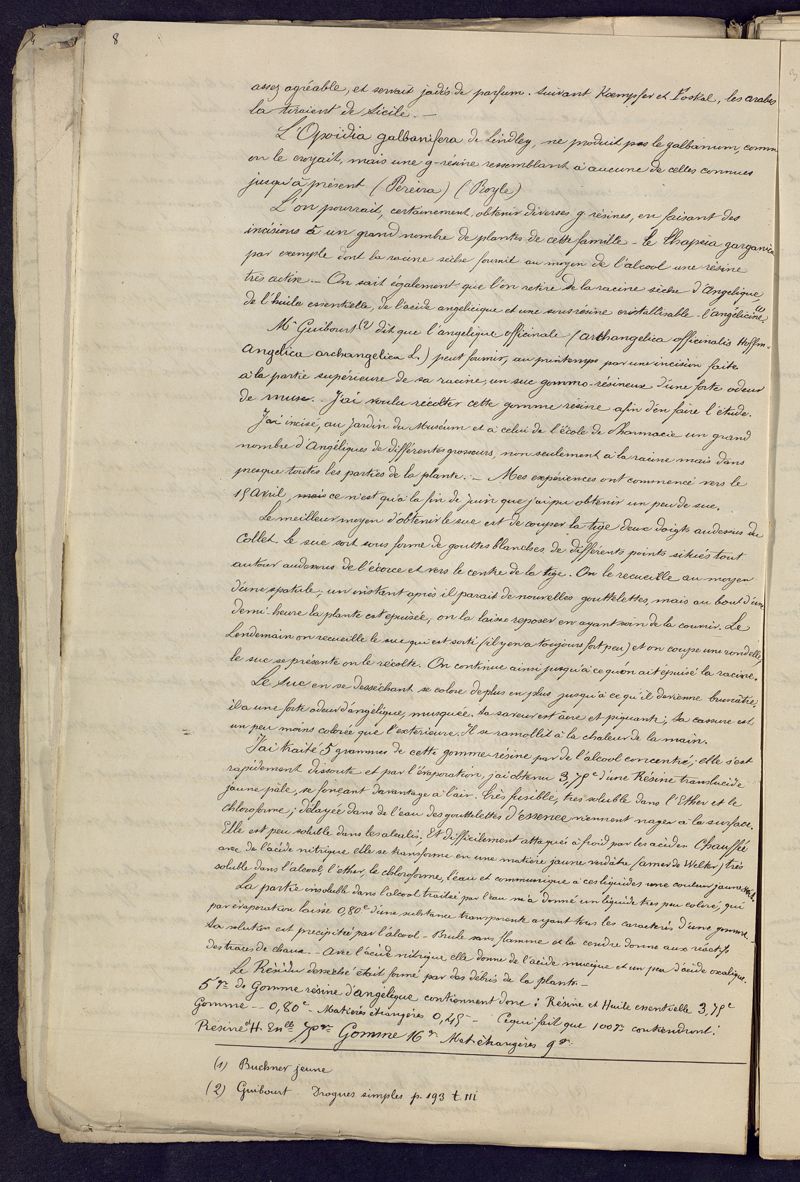 8
assez agréable, et servait jadis de parfum. Suivant Kœmpfer et Foskal, les arabes
la tiraient de Sicile. —
L'Opoïdia galbanifera de Lindley, ne produit pas le galbanum, comme
on le croyait, mais une g-résine ressemblant à aucune de celles connues
jusqu'à présent (Pereira) (Royle)
L'on pourrait, certainement, obtenir diverses g. résines, en faisant des
incisions à un grand nombre de plantes de cette famille — le Thapsia garganica
par exemple dont la racine sèche fournit au moyen de l'alcool une résine
très active. — On sait également que l'on retire de la racine sèche d'Angélique,
de l'huile essentielle, de l'acide angelicique et une sous résine cristallisable l'angélicine (1)
Mr Guibourt (2) dit que l'angelique officinale (archangelica officinalis Hoffm.
Angelica archangelica L.) peut fournir, au printemps par une incision faite
à la partie supérieure de sa racine, un suc gommo-résineux d'une forte odeur
de musc. — J'ai voulu récolter cette gomme résine afin d'en faire l'étude.
J'ai incisé, au jardin du Muséum et à celui de l'école de Pharmacie un grand
nombre d'Angéliques de différentes grosseurs, non seulement à la racine mais dans
presque toutes les parties de la plante. — Mes expériences ont commencé vers le
15 Avril, mais ce n'est qu'à la fin de juin que j'ai pu obtenir un peu de suc.
Le meilleur moyen d'obtenir le suc est de couper la tige deux doigts au dessus du
Collet. Le suc sort sous forme de gouttes blanches de différents points situés tout
autour au dessous de l'écorce et vers le centre de la tige. On le recueille au moyen
d'une spatule, un instant après il parait de nouvelles gouttelettes, mais au bout d'une
demi-heure la plante est épuisée, on la laisse reposer en ayant soin de la couvrir. Le
Lendemain on recueille le suc qui est sorti (il y en a toujours fort peu) et on coupe une rondelle,
le suc se présente on le récolte. On continue ainsi jusqu'à ce qu'on ait épuisé la racine.
Le Suc en se desséchant se colore de plus en plus jusqu'à ce qu'il devienne brunâtre,
il a une forte odeur d'angélique, musquée. Sa saveur est âcre et piquante; sa cassure est
un peu moins colorée que l'extérieure. Il se ramollit à la chaleur de la main.
J'ai traité 5 grammes de cette gomme-résine par de l'alcool concentré; elle s'est
rapidement dissoute et par l'évaporation, j'ai obtenu 3,75c d'une Résine translucide
jaune pâle, se fonçant davantage à l'air. très fusible, très soluble dans l'Ether et le
chloroforme; délayée dans de l'eau des gouttelettes d'essence viennent nager à la surface.
Elle est peu soluble dans les alcalis, Et difficilement attaquée à froid par les acides Chauffée
avec de l'acide nitrique elle se transforme en une matière jaune verdâtre (amer de Welter) très
soluble dans l'alcool, l'ether, le chloroforme, l'eau et communique à ces liquides une couleur jaune
La partie insoluble dans l'alcool traitée par l'eau m'a donné un liquide très peu coloré, qui
par évaporation laisse 0,80c d'une substance transparente ayant tous les caractères d'une gomme. —
Sa solution est précipitée par l'alcool — Brule sans flamme et la cendre donne aux réactifs
des traces de chaux. — Avec l'acide nitrique elle donne de l'acide mucique et un peu d'acide oxalique.
Le Résidu desséché était formé par des débris de la plante. —
5 gr. de Gomme résine d'angélique contiennent donc: Résine et Huile essentielle 3,75c
Gomme — 0,80c — Matières étrangères 0,45 — Ce qui fait que 100 gr. contiendront:
Résine et H. Enlle 75 gr. Gomme 16 gr. Mat. étrangères 9 gr.
(1) Buchner jeune
(2) Guibourt Drogues simples p. 193 t. III